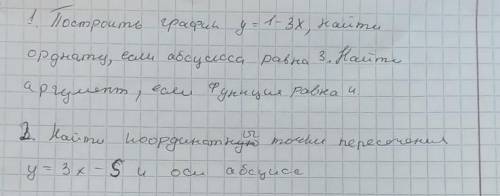 1. Построить график y = 1 - 3x, найти
орднату, если абсцисса равна 3. Найти
аргумент, если функция равна 4.
2. Найти координаты точки пересечения
y = 3x - 5 и оси абсцисс